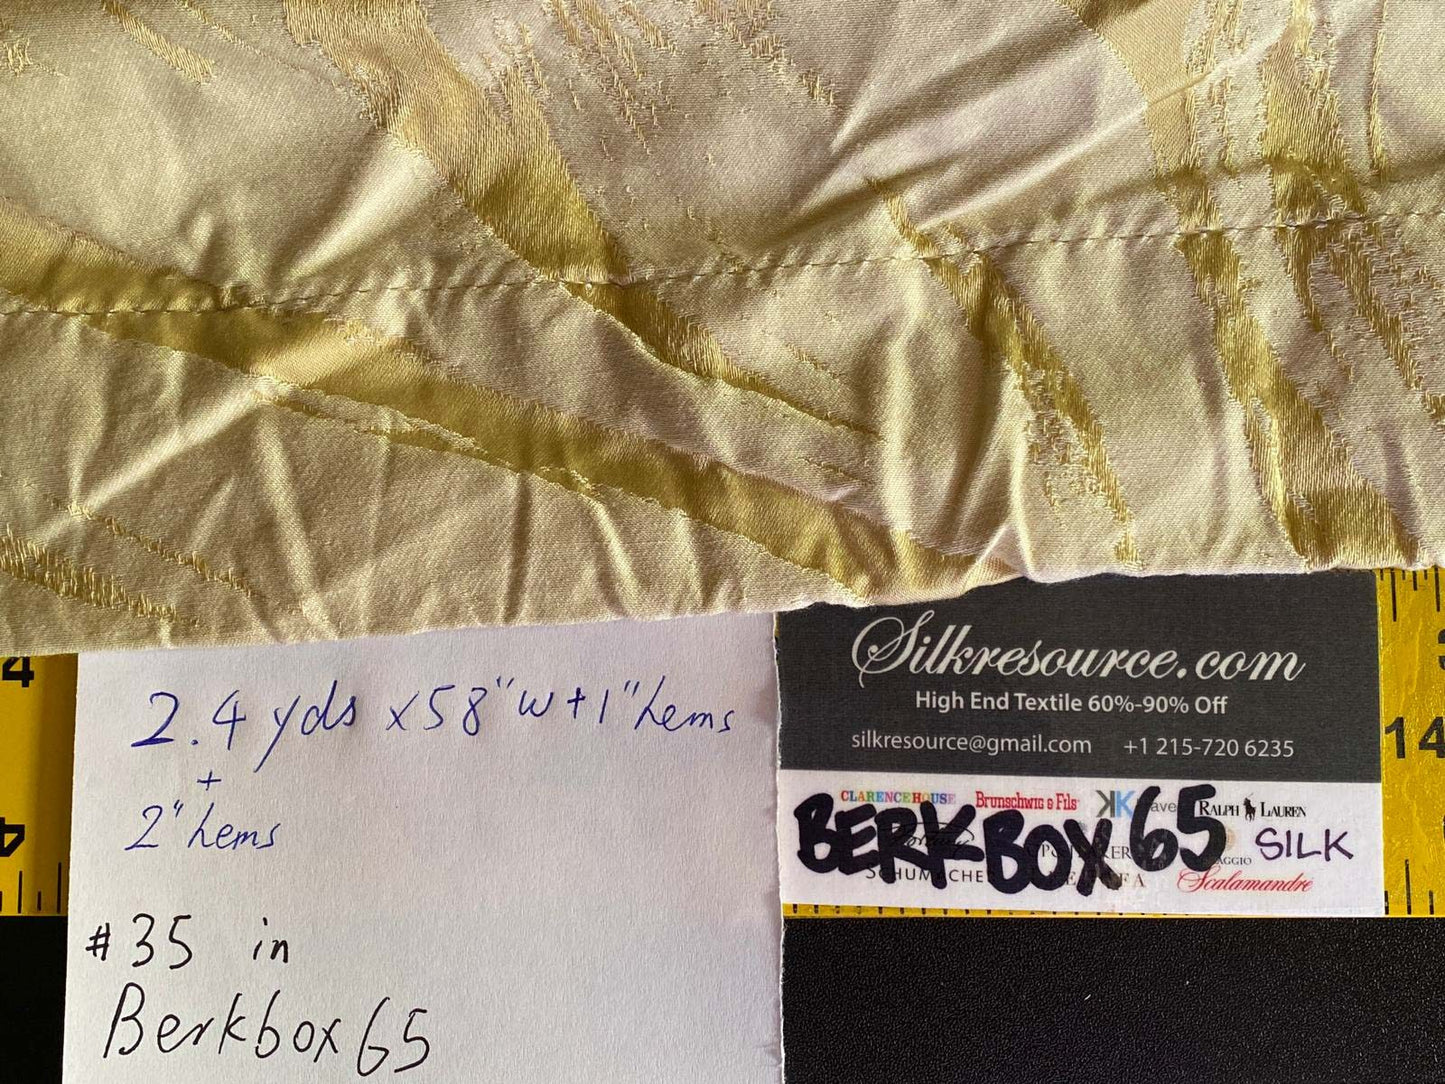 2.4 yds x 58" w + 1" hems
+
2" hems
#35 in
Berkbox 65
Silkresource.com
High End Textile 60%-90% Off
silkresource@gmail.com +1 215-720 6235
CLARENCE HOUSE Brunschwig & Fils RALPH LAUREN
BERK BOX 65 SILK
SCHUMACHER Scalamandré
4
4
14